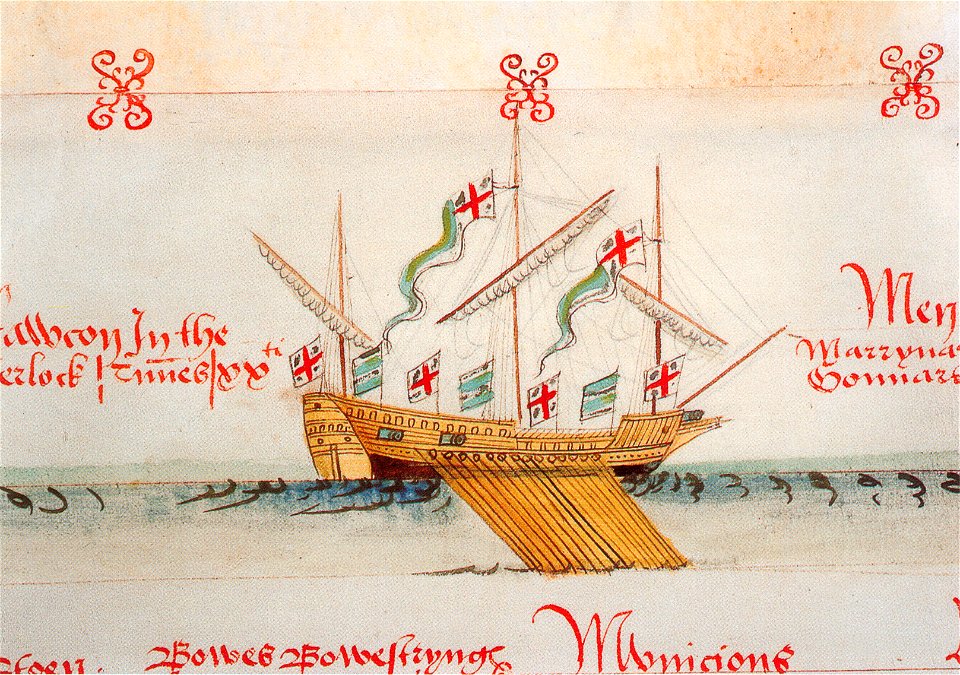 fawcon In the
erlock Tunnes xxti
Men
Marryna
Gonnars
Bowes Bowestryngs
Monicions